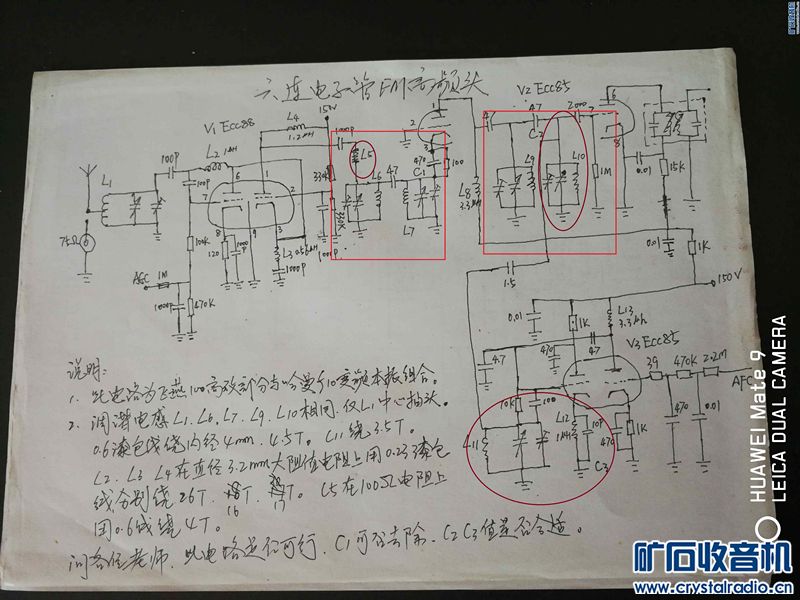 六连电子管FM高频头
V1 Ecc88
V2 Ecc85
150V
L4
1.2μH
1000P
L2 1μH
100P
100P
L1
75Ω
6
1
7
2
8
9
3
330K
330K
1000P
L5
L6
47
L7
C1
470
100
1
2
3
L8
3.3μH
47
C2
L9
L10
2000
7
6
8
1M
0.01
15K
0.01
1K
100K
120
1000P
L3 0.56μH
1000P
AGC
1M
1000P
470K
1.5
150V
0.01
1K
L13
3.3μh
V3 Ecc85
4.7
470
47
39
470K
2.2M
AFC
10K
100
L11
L12
1μH
10P
C3
470
1K
470
0.01
说明:
1. 此电路为飞燕100高放部分与哈曼卡10变频本振组合。
2. 调谐电感L1、L6、L7、L9、L10相同、仅L1中心抽头。
0.6漆包线绕内径4mm、4.5T。L11绕3.5T。
L2、L3、L4在直径3.2mm大阻值电阻上用0.23漆包
线分别绕26T、T、T。L5在100Ω电阻上
16 17
用0.6线绕4T。
问各位老师、此电路是否可行、C1可否去除、C2 C3值是否合适。
HUAWEI Mate 9
LEICA DUAL CAMERA
矿石收音机
www.crystalradio.cn